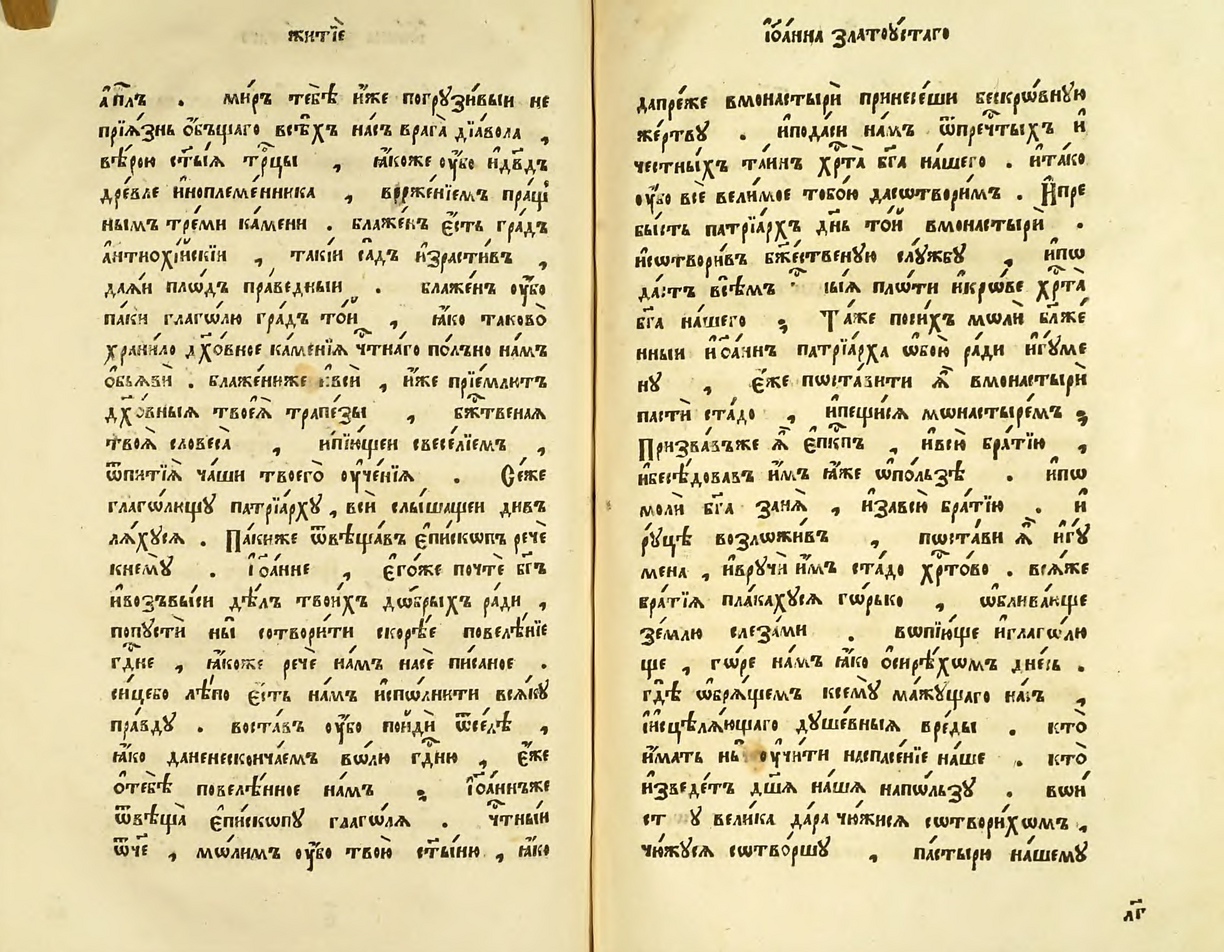 житїѐ
а҆п҃лъ . ми́ръ тебѣ̀ и҆́же погрꙋзи́выи не
прїѧ́знь ѻ҆́бъщаго всѣ́хъ на́съ врага̀ дїа́вола ,
вѣ́рою ст҃ы́ѧ тр҇цы , ꙗ҆́коже ᲂу҆́бо и҆дв҃дъ
дре́вле и҆ноплеме́нника , врже́нїемъ пращ
ны́мъ тремѝ ка́мени . блаже́нъ є҆́сть гра́дъ
а҆нтиохі́искїи , такі́и са́дъ и҆зрасти́въ ,
даѧ́и пло́дъ пра́ведныи . блаже́нъ ᲂу҆́бо
па́ки глаго́лю гра́дъ то́и , ꙗ҆́ко таково̀
храни́ло дх҃о́вное ка́менїѧ чт҇на́го по́лъно на́мъ
ѻ҆бьѧвѝ . блаже́ниже и҆всѝ , и҆́же прїе́млитъ
дх҃о́вныѧ твоеѧ̀ трапе́зы , бж҇твенаѧ
твоѧ̀ словеса̀ , и҆пїю́щеи свесе́лїемъ ,
ѿпитїѧ̀ ча́ши твоего̀ ᲂу҆че́нїѧ . Се́же
глаго́лющꙋ патрїа́рхꙋ , всѝ слы́шащеи див
лѧ́хꙋсѧ . Па́киже ѿвѣща́въ є҆пи́скопъ речѐ
кнемꙋ̀ . і҆ѻа́нне , є҆го́же почтѐ бг҃ъ
и҆возъвы́си дѣ́лъ твои́хъ дѡ́брыхъ ра́ди ,
попꙋстѝ ны̀ сотвори́ти скорѣ́е повелѣ́нїе
гд҇не , ꙗ҆́коже речѐ на́мъ насѐ пи́саное .
си́цебо лѣ́по є҆́сть на́мъ и҆спѡ́лнити всѧ́кꙋ
пра́вдꙋ . воста́въ ᲂу҆́бо пои҆дѝ ѿсе́лѣ ,
ꙗ҆́ко даненесконча́емъ вѡ́лю гд҇ню , є҆́же
ѻ҆тебѣ̀ повелѣ́нное на́мъ ; і҆ѻа́ннъже
ѿвѣща̀ є҆пи́скопꙋ глаго́лѧ . чт҇ны́и
ѿч҃е , мѡ́лимъ ᲂу҆́бо твою̀ ст҃ы́ню , ꙗ҆́ко
і҆ѻа́нна златоу́стаго
дапре́же вмонастырѝ принесе́ши бескрѡ́внꙋю
же́ртвꙋ . и҆пода́си на́мъ ѿпреч҇тыхъ и҆
че́стныхъ та́инъ хр҇та̀ бг҃а на́шего . и҆та́ко
ᲂу҆́бо всѐ вели́мое тобо́ю дасѡтвори́мъ . И҆пре
бы́сть патрїа́рхъ дн҃ь то́и вмонастырѝ .
и҆сѡтвори́въ бж҇е́ственꙋю слꙋ́жбꙋ , и҆пѡ
да́стъ всѣ́мъ пло́ти и҆кро́ве хр҇та̀
бг҃а на́шего ; Та́же поси́хъ мѡлѝ бл҃же
нныи и҆ѻа́ннъ патрїа́рха ѡ҆бо́ю ра́ди и҆гꙋ́ме
нꙋ , є҆́же пѡста́вити ѧ҆̀ вмонастырѝ
пастѝ ста́до , и҆пещи́сѧ мѡнастыре́мъ ;
Призва́въже ѧ҆̀ є҆пи҇кпъ , и҆всю̀ бра́тїю ,
и҆бесѣ́довавъ и҆́мъ ꙗ҆́же ѡ҆по́льзѣ . и҆пѡ
молѝ бг҃а занѧ̀ , и҆завсю̀ бра́тїю . и҆
рꙋ́цѣ возлѡжи́въ , пѡста́ви ѧ҆̀ и҆гꙋ́
мена , и҆врꙋчѝ и҆́мъ ста́до хр҇то́во . всѧ́же
бра́тїѧ пла́кахꙋсѧ гѡ́рько , ѡ҆блива́юще
зе́млю слеза́ми . вѡпїю́ще и҆глаго́лю
ще , гѡ́ре на́мъ ꙗ҆́ко ѻ҆сирѣ́хѡмъ дне́сь .
гдѣ̀ ѡ҆брѧ́щемъ ксемꙋ̀ ма́жꙋщаго на́съ ,
і҆исцѣлѧ́ющаго дꙋше́вныѧ вре́ды . кто̀
и҆́мать ны̀ ᲂу҆чи́ти наспасе́нїе на́ше . кто̀
и҆зведе́тъ дш҃а на́шѧ напо́льзꙋ . вѡи́
ст ꙋ вели́ка да́ра чю́жисѧ сѡтвори́хѡмъ ,
чю́жꙋсѧ сѡтво́ршꙋ , па́стырю на́шемꙋ
л҃г